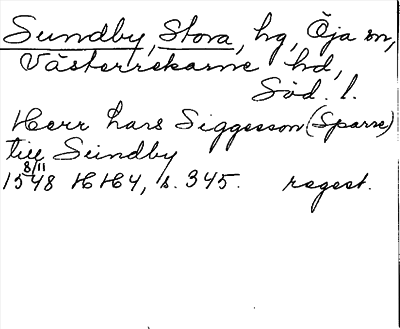 Sundby, Stora, hg, Öja sn,
Västerrekarne hd,
Söd. l.
Herr Lars Siggesson (Sparre)
till Sundby
1548 8/11 HH4, s. 345. regest.